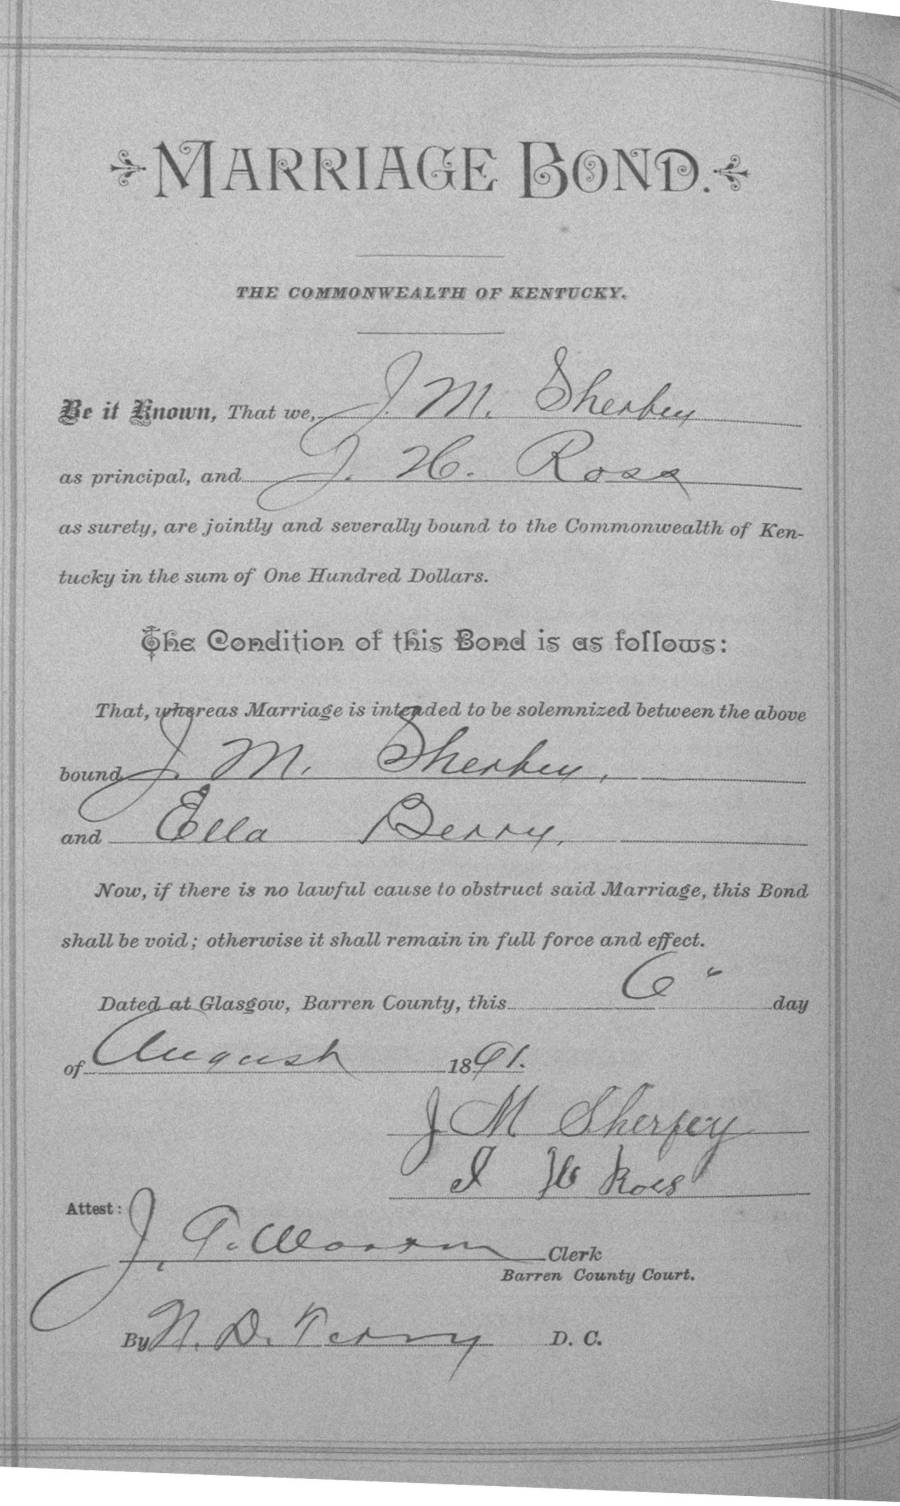 MARRIAGE BOND.
THE COMMONWEALTH OF KENTUCKY.
Be it Known, That we, J. M. Sherfey
as principal, and J. H. Ross
as surety, are jointly and severally bound to the Commonwealth of Ken-
tucky in the sum of One Hundred Dollars.
The Condition of this Bond is as follows:
That, whereas Marriage is intended to be solemnized between the above
bound J. M. Sherfey,
and Ella Berry,
Now, if there is no lawful cause to obstruct said Marriage, this Bond
shall be void; otherwise it shall remain in full force and effect.
Dated at Glasgow, Barren County, this 6" day
of August 1891.
J M Sherfey
J H Ross
Attest: J. T. Wooten Clerk
Barren County Court.
By N. D. Terry D. C.